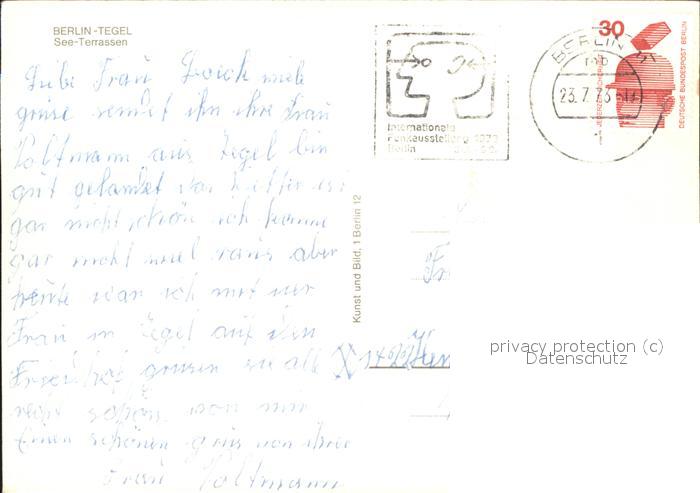 BERLIN-TEGEL
See-Terrassen
Liebe Frau viele
grüse sendet ihn ihre Frau
Voltmann aus Tegel bin
gut gelandet das Wetter ist
gar nicht schön ich komme
gar nicht viel raus aber
heute war ich mit
Frau in Tegel auf den
Friedhof grüsen sie alle
recht schön von mir
Einen schönen grus von ihrer
Frau Voltmann
Kunst und Bild, 1 Berlin 12
Internationale
Funkausstellung 1973
Berlin
BERLIN
23.7.73
30
JEDERZEIT SICHERHEIT
DEUTSCHE BUNDESPOST BERLIN
Fr
privacy protection (c)
Datenschutz